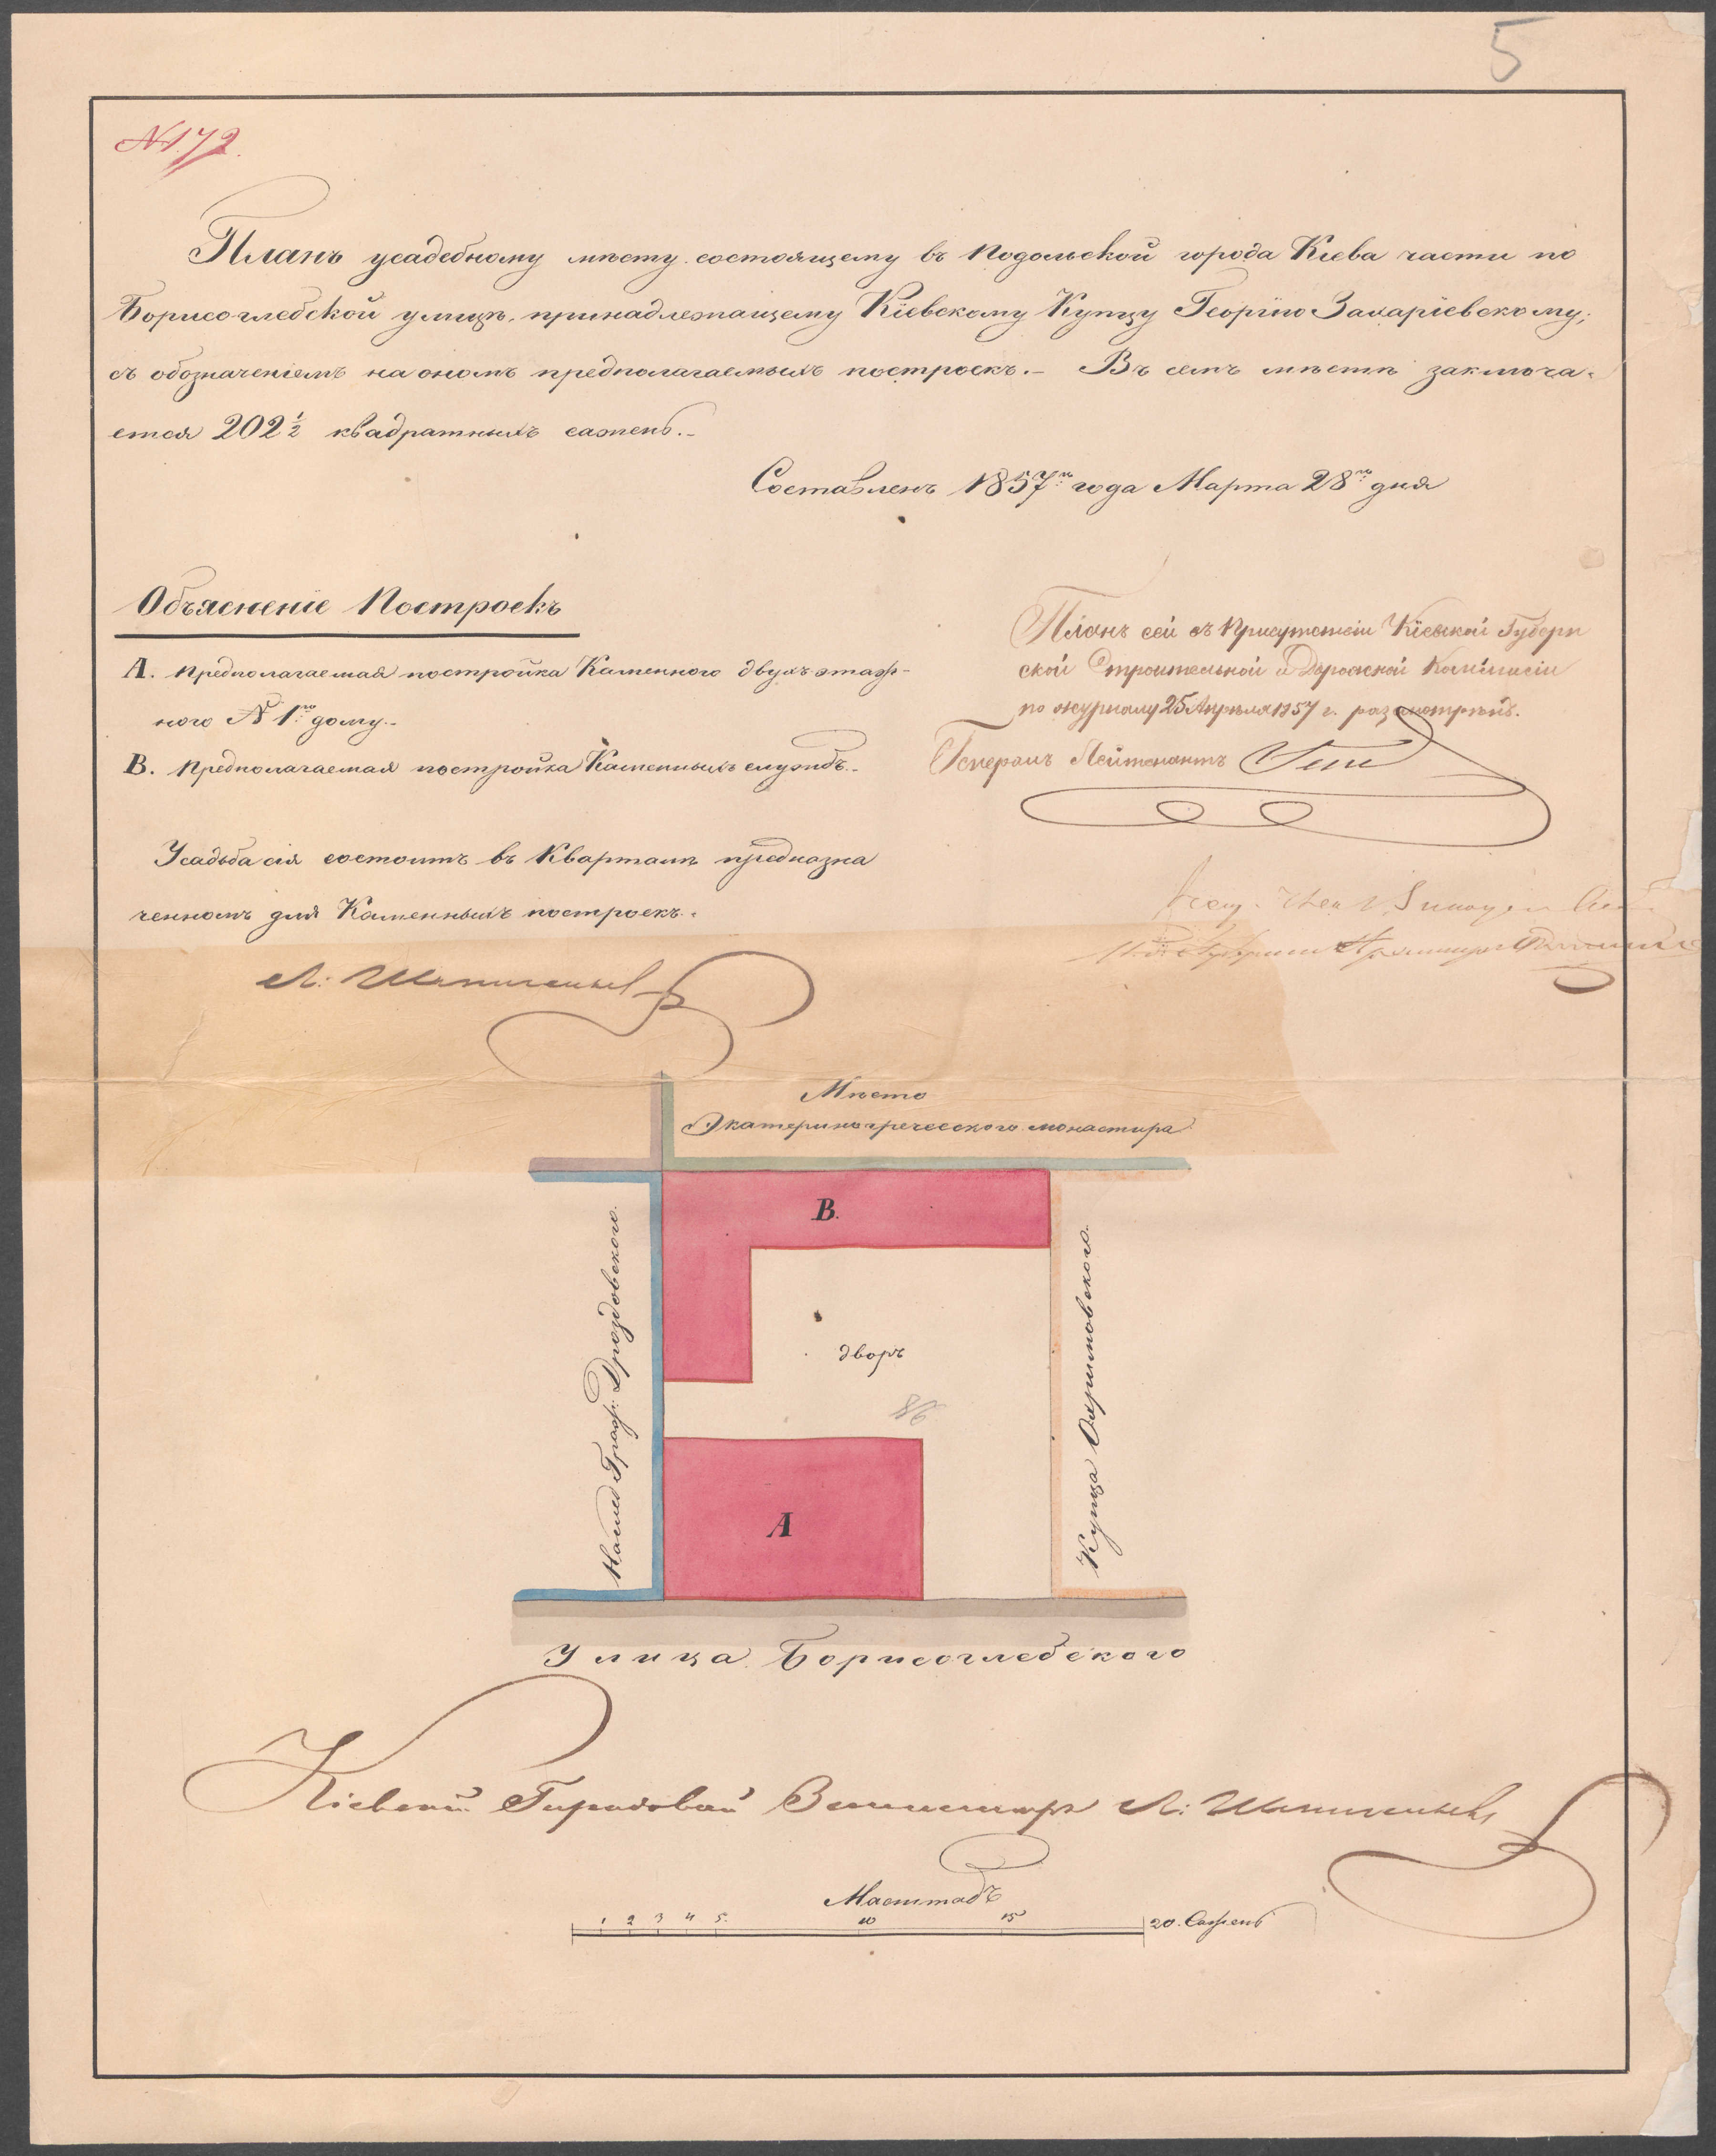 5
№172.
Планъ усадебному мѣсту состоящему въ Подольской города Кіева части по
Борисоглебской улицѣ, принадлежащему Кіевскому Купцу Георгію Захаріевскому;
съ обозначеніемъ на ономъ предполагаемыхъ построекъ.- Въ семъ мѣстѣ заключа-
ется 202 1/2 квадратныхъ сажень.-
Составленъ 1857го года Марта 28го дня
Объясненіе Построекъ
А. предполагаемая постройка Каменного двухъ этаж-
ного № 1го дому.-
В. предполагаемая постройка Каменныхъ службъ.-
Усадьба сія состоитъ въ Кварталѣ предназна
ченномъ для Каменныхъ построекъ.
Планъ сей въ Присутствіи Кіевской Губерн
ской Строительной и Дорожной Комисіи
по журналу 25 Апрѣля 1857 г. разсмотрѣнъ.
Генералъ Лейтенантъ
Мѣсто
Экатерино греческого монастира
В.
дворъ
А
Граж: Дроздовского.
Купца
Улица Борисоглебского
Кіевскій Городовой Землемѣръ Л:
Масштабъ
1 2 3 4 5. 10 15 20. Сажень